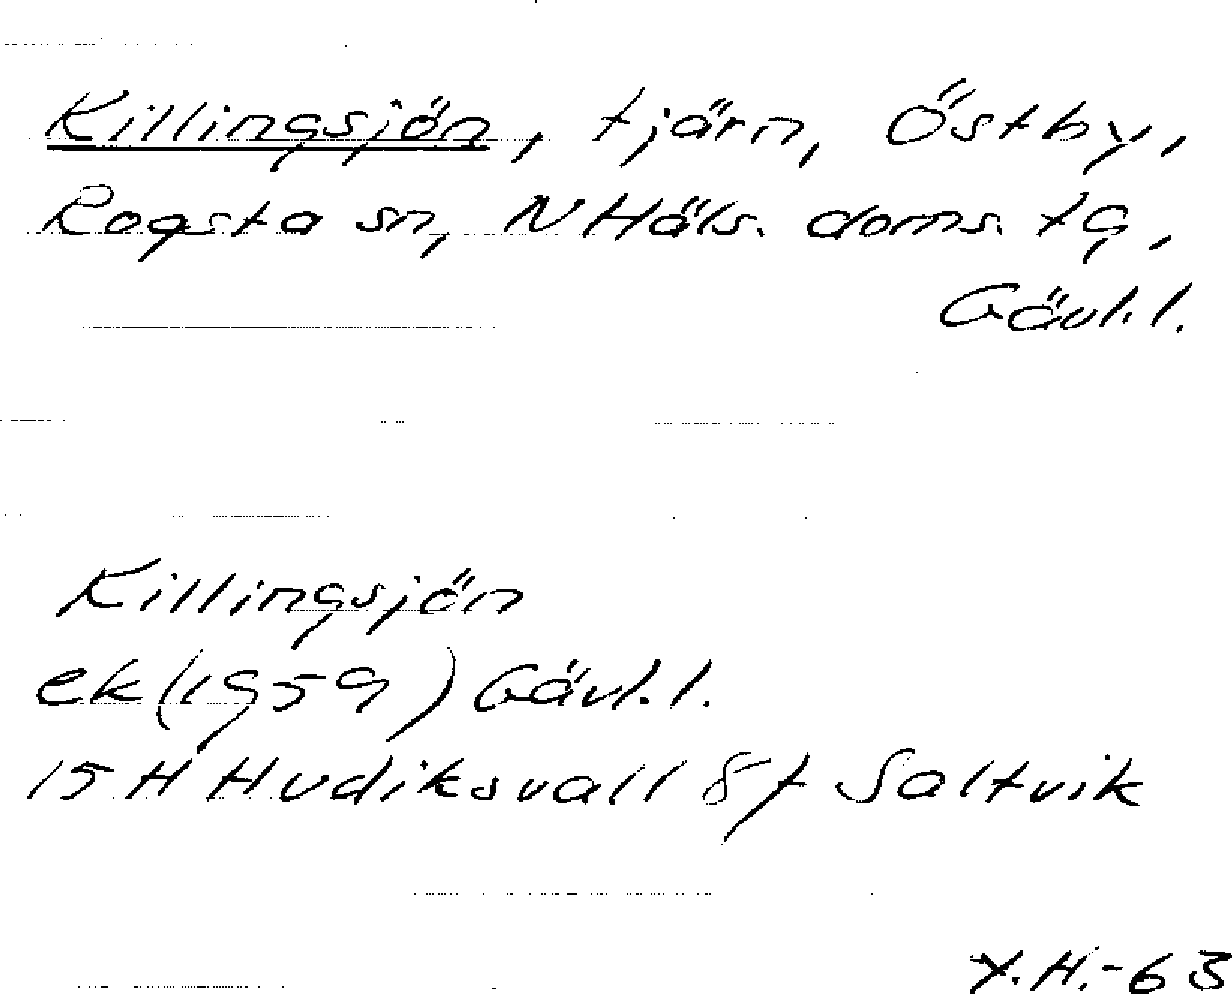 Killingsjön, tjärn, Östby,
Rogsta sn, N Häls. doms. tg,
Gävl. l.
Killingsjön
ek (1959) Gävl. l.
15 H Hudiksvall 8f Saltvik
Y.H.-63